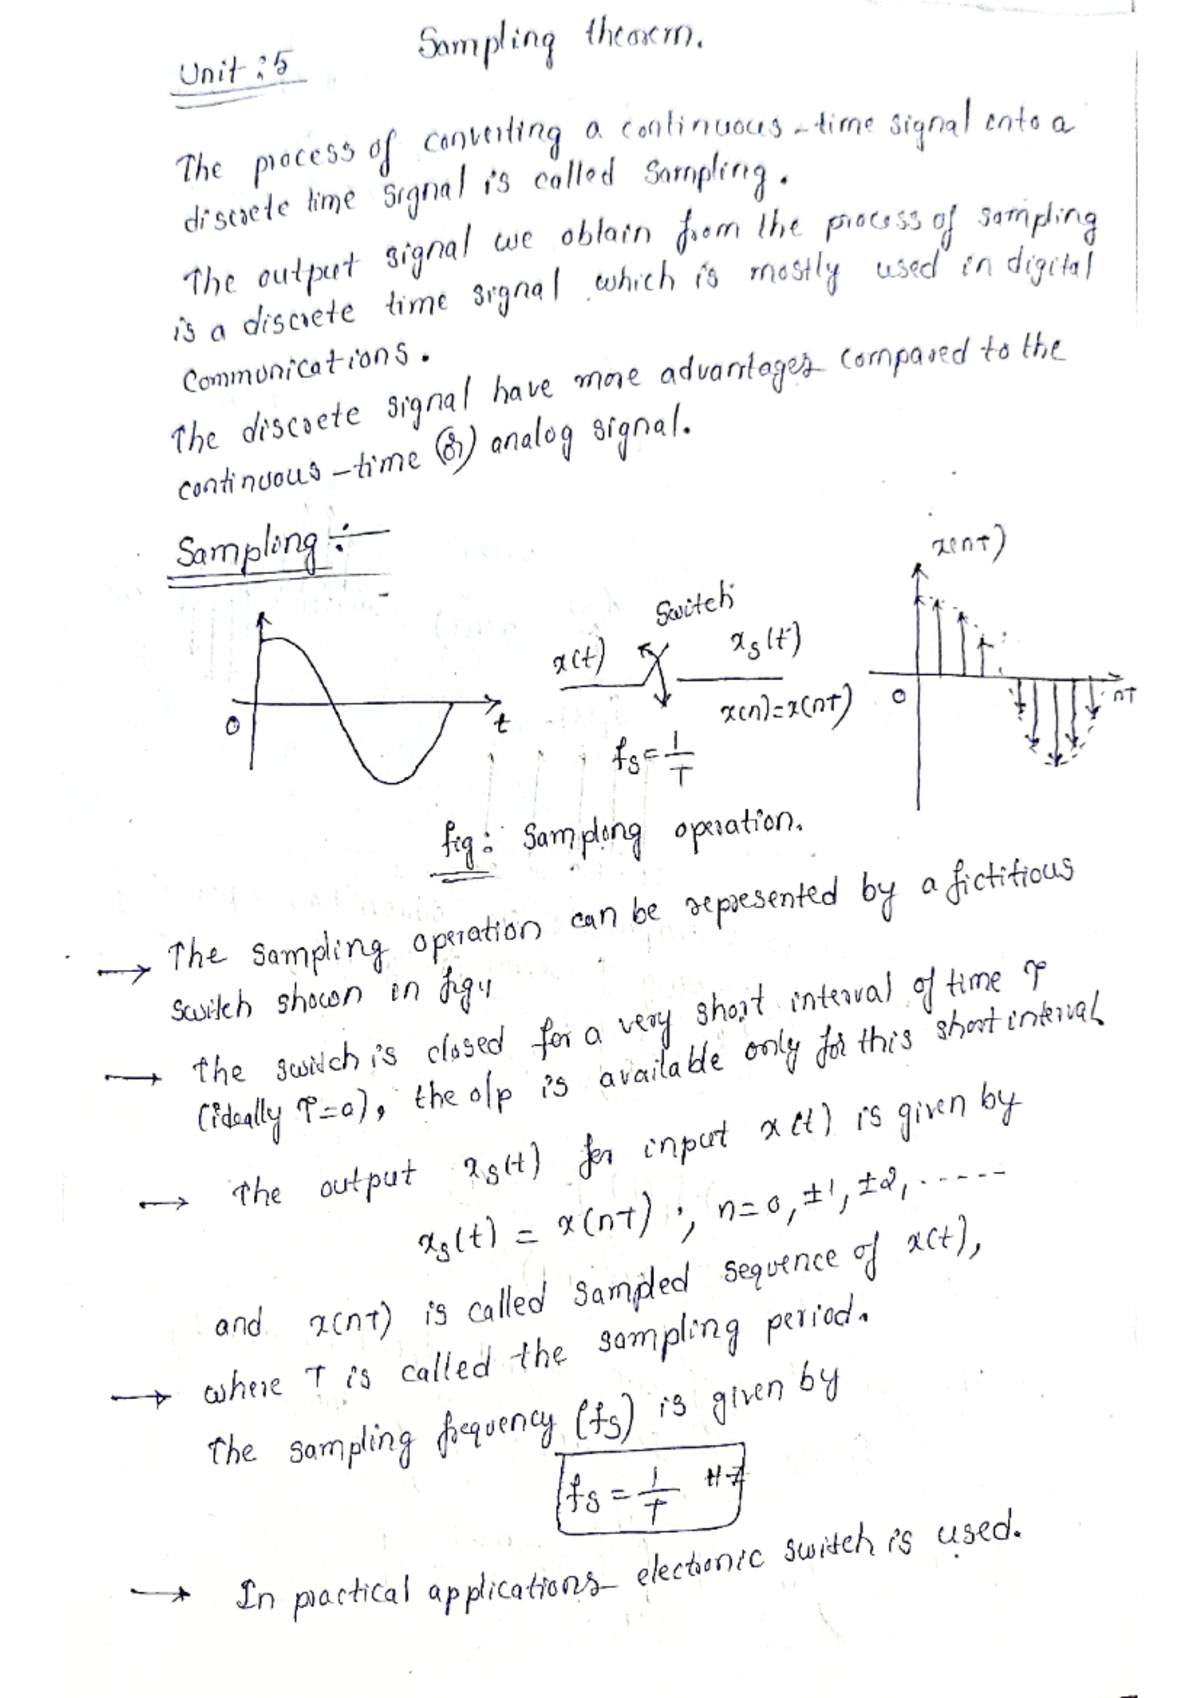 Unit :5
Sampling theorem.
The process of converting a continuous-time signal into a
discrete time signal is called Sampling.
The output signal we obtain from the process of sampling
is a discrete time signal which is mostly used in digital
Communications.
The discrete signal have more advantages compared to the
continuous-time (or) analog signal.
Sampling :-
x(nT)
Switch
x(t)
xs(t)
x(n)=x(nT)
0
t
0
nT
fs = 1/T
fig: Sampling operation.
→ The sampling operation can be represented by a fictitious
switch shown in fig4
→ the switch is closed for a very short interval of time τ
(ideally τ=0), the o/p is available only for this short interval
→ The output xs(t) for input x(t) is given by
xs(t) = x(nT) ; n=0, ±1, ±2, .....
and x(nT) is called sampled sequence of x(t),
→ where T is called the sampling period.
The sampling frequency (fs) is given by
fs = 1/T Hz
→ In practical applications electronic switch is used.